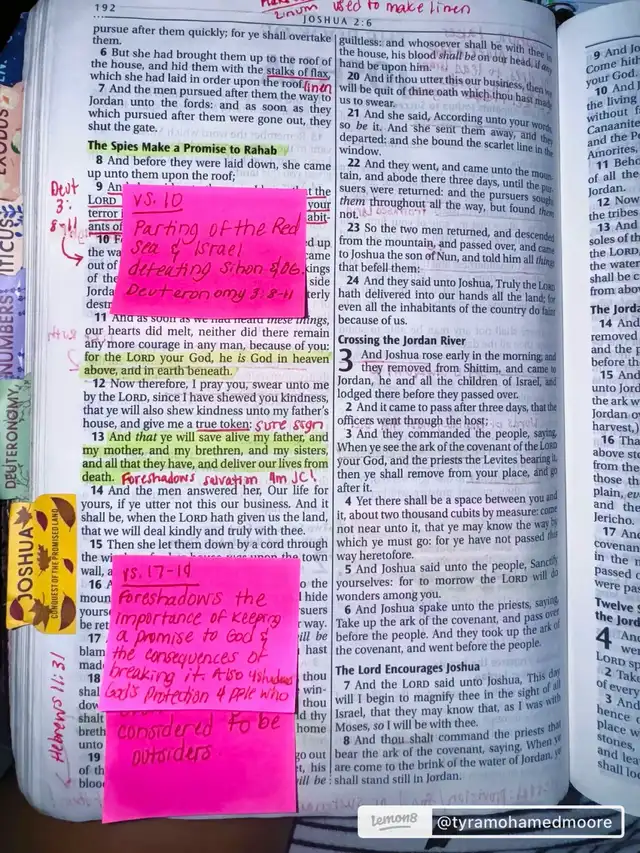 used to make linen
linum
192
JOSHUA 2:6
pursue after them quickly; for ye shall overtake
them.
6 But she had brought them up to the roof of
the house, and hid them with the stalks of flax,
which she had laid in order upon the roof.
linen
7 And the men pursued after them the way to
Jordan unto the fords: and as soon as they
which pursued after them were gone out, they
shut the gate.
The Spies Make a Promise to Rahab
8 And before they were laid down, she came
up unto them upon the roof;
9 And
the
LORD
your
terror
abit-
ants of
10
ed up
the wa
came
out of
kings
of the
side
Jorda
terly
destr
Deut
3:
8-11
vs. 10
Parting of the Red
Sea & Israel
defeating Sihon & OG.
Deuteronomy 3:8-11
11 And as soon as we had heard these things,
our hearts did melt, neither did there remain
any more courage in any man, because of you:
for the LORD your God, he is God in heaven
above, and in earth beneath.
12 Now therefore, I pray you, swear unto me
by the LORD, since I have shewed you kindness,
that ye will also shew kindness unto my father's
house, and give me a true token:
sure sign
13 And that ye will save alive my father, and
my mother, and my brethren, and my sisters,
and all that they have, and deliver our lives from
death.
Foreshadows salvation
JC!
14 And the men answered her, Our life for
yours, if ye utter not this our business. And it
shall be, when the LORD hath given us the land,
that we will deal kindly and truly with thee.
15 Then she let them down by a cord through
the wi
town
wall, a
16
to the
moun
hide
yourse
suers
way.
17
ill be
blam
hast
made
18
thou
shal
win-
dow
thou
shalt
d thy
breth
home
unto
19
go out
of th
t, his
bloo
ill be
vs. 17-19
Foreshadows the
importance of keeping
a promise to God &
the consequences of
breaking it. Also
God's protection 4 pple who
considered to be
outsiders
Hebrews 11:31
guiltless: and whosoever shall be with thee in
the house, his blood shall be on our head, if any
hand be upon him.
20 And if thou utter this our business, then we
will be quit of thine oath which thou hast made
us to swear.
21 And she said, According unto your words,
so be it. And she sent them away, and they
departed: and she bound the scarlet line in the
window.
22 And they went, and came unto the moun-
tain, and abode there three days, until the pur-
suers were returned: and the pursuers sought
them throughout all the way, but found them
not.
23 So the two men returned, and descended
from the mountain, and passed over, and came
to Joshua the son of Nun, and told him all things
that befell them:
24 And they said unto Joshua, Truly the LORD
hath delivered into our hands all the land; for
even all the inhabitants of the country do faint
because of us.
Crossing the Jordan River
3 And Joshua rose early in the morning; and
they removed from Shittim, and came to
Jordan, he and all the children of Israel, and
lodged there before they passed over.
2 And it came to pass after three days, that the
officers went through the host;
3 And they commanded the people, saying,
When ye see the ark of the covenant of the LORD
your God, and the priests the Levites bearing it,
then ye shall remove from your place, and go
after it.
4 Yet there shall be a space between you and
it, about two thousand cubits by measure: come
not near unto it, that ye may know the way by
which ye must go: for ye have not passed this
way heretofore.
5 And Joshua said unto the people, Sanctify
yourselves: for to morrow the LORD will do
wonders among you.
6 And Joshua spake unto the priests, saying,
Take up the ark of the covenant, and pass over
before the people. And they took up the ark of
the covenant, and went before the people.
The Lord Encourages Joshua
7 And the LORD said unto Joshua, This day
will I begin to magnify thee in the sight of all
Israel, that they may know that, as I was with
Moses, so I will be with thee.
8 And thou shalt command the priests that
bear the ark of the covenant, saying, When ye
are come to the brink of the water of Jordan, ye
shall stand still in Jordan.
9 And J
Come hith
your God.
10 And J
the living
without f
Canaan
and the
Amorites,
11 Beh
of all the
Jordan.
12 Now
the tribes
13 And
soles of th
the LORD,
the water
shall be c
from abo
The Jorda
14 And
removed
and the p
before the
15 And
unto Jord
the ark w
Jordan o
harvest,)
16 Tha
above sto
from the
those th
plain, ev
and the
Jericho.
17 And
covenant
in the m
passed
were pa
Twelve
4 An
we
LORD sp
2 Take
of every
3 And
hence
place w
stones,
and lea
shall lo
EXODUS
LEVITICUS
NUMBERS
DEUTERONOMY
JOSHUA
CONQUEST OF THE PROMISED LAND
lemon8
@tyramohamedmoore